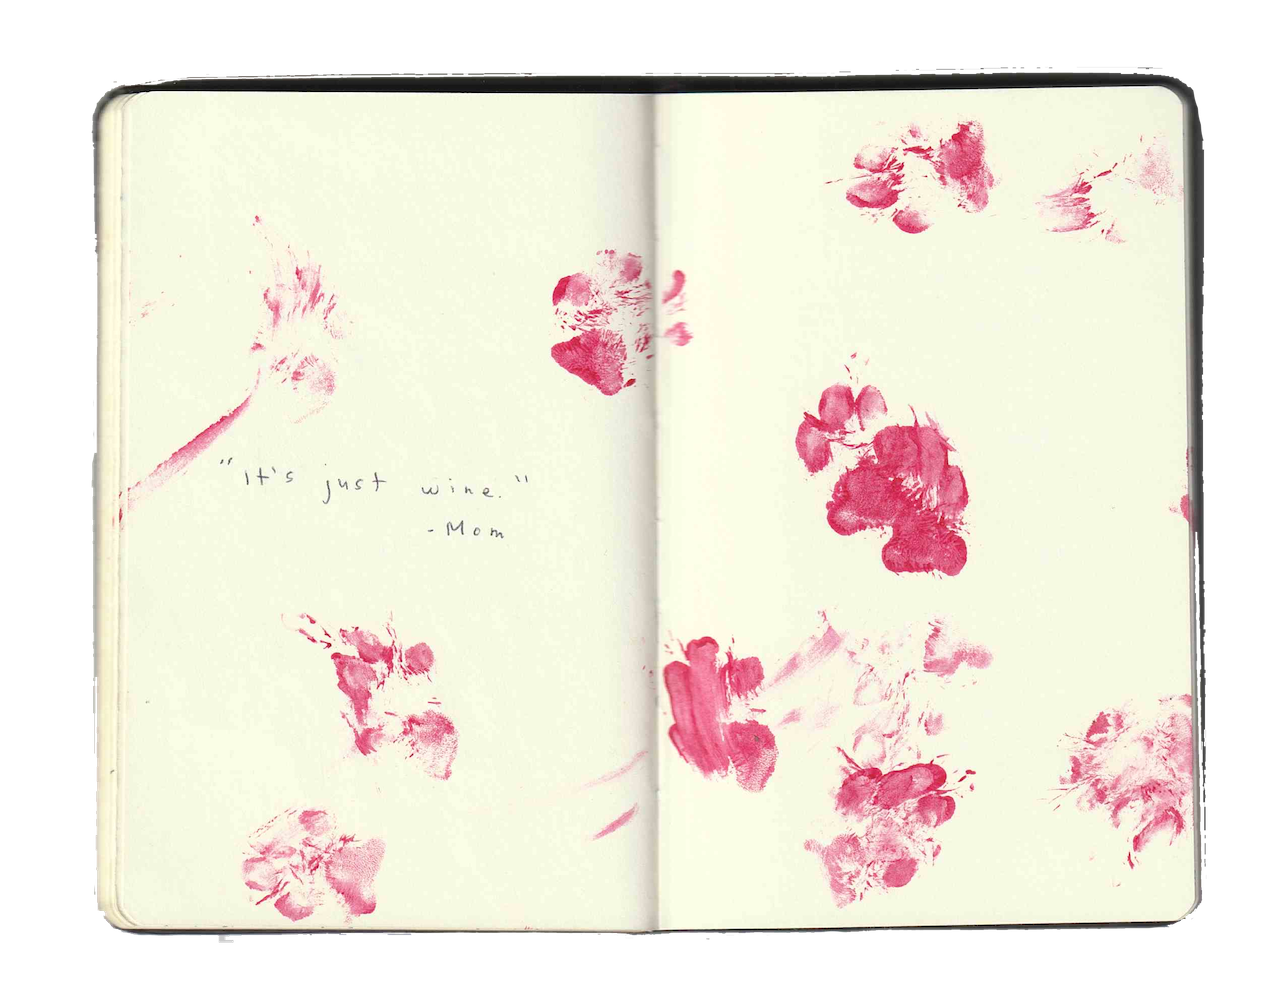 "It's just wine."
- Mom